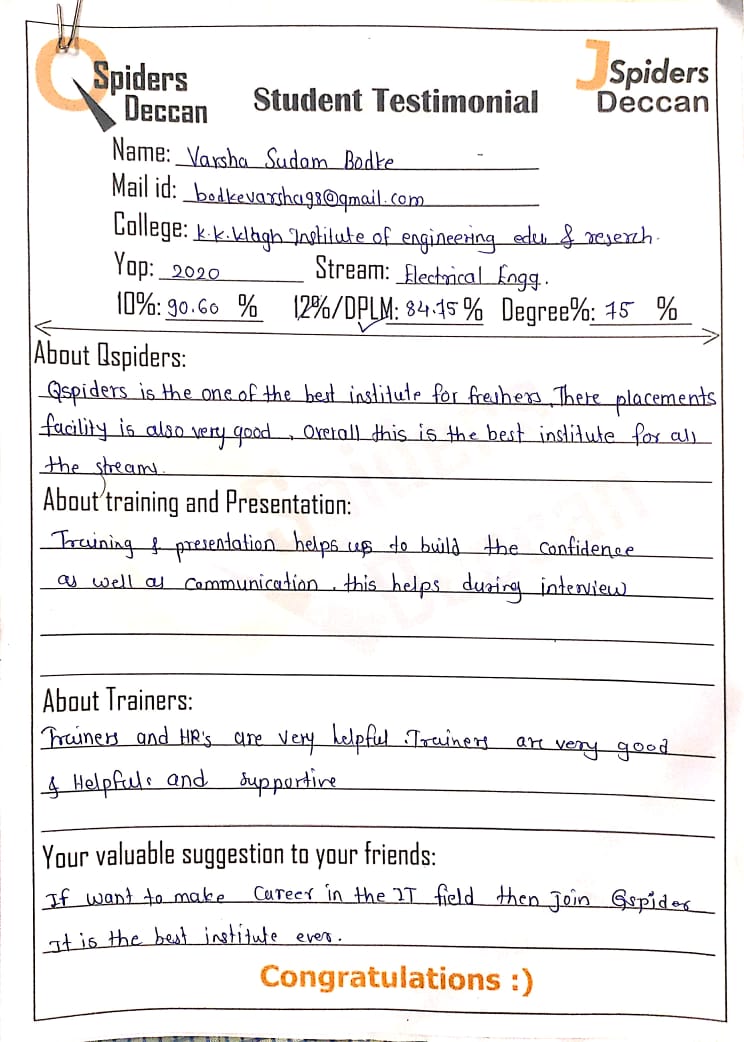 QSpiders
Deccan
JSpiders
Deccan
Student Testimonial
Name: Varsha Sudam Bodke
Mail id: bodkevarsha98@gmail.com
College: K.K.Wagh Institute of engineering edu & reserch.
Yop: 2020 Stream: Electrical Engg.
10%: 90.60 % 12%/DPLM: 84.75 % Degree%: 75 %
About Qspiders:
Qspiders is the one of the best institute for freshers, There placements
facility is also very good, Overall this is the best institute for all
the stream.
About training and Presentation:
Training & presentation helps us to build the confidence
as well as communication. this helps during interview
About Trainers:
Trainers and HR's are very helpful. Trainers are very good
& Helpful. and supportive
Your valuable suggestion to your friends:
If want to make Career in the IT field then join Qspider
It is the best institute ever.
Congratulations :)